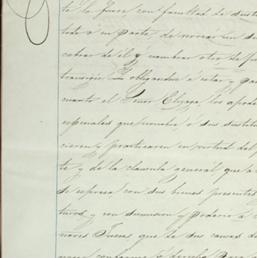 te la fuera con facultad de sustit
todo o en parte de novar un su
cobrar de él y nombrar otro de nu
transigir obligandose a estar y pa
cuanto el Señor Elyzga los apode
especiales que nombre o sus sustitu
cieren y practicaren en virtud del p
te y de la clausula general que a
se espresa, con sus bienes presentes
turos y con sumision y poderio a
nores Jueces que de sus causas d